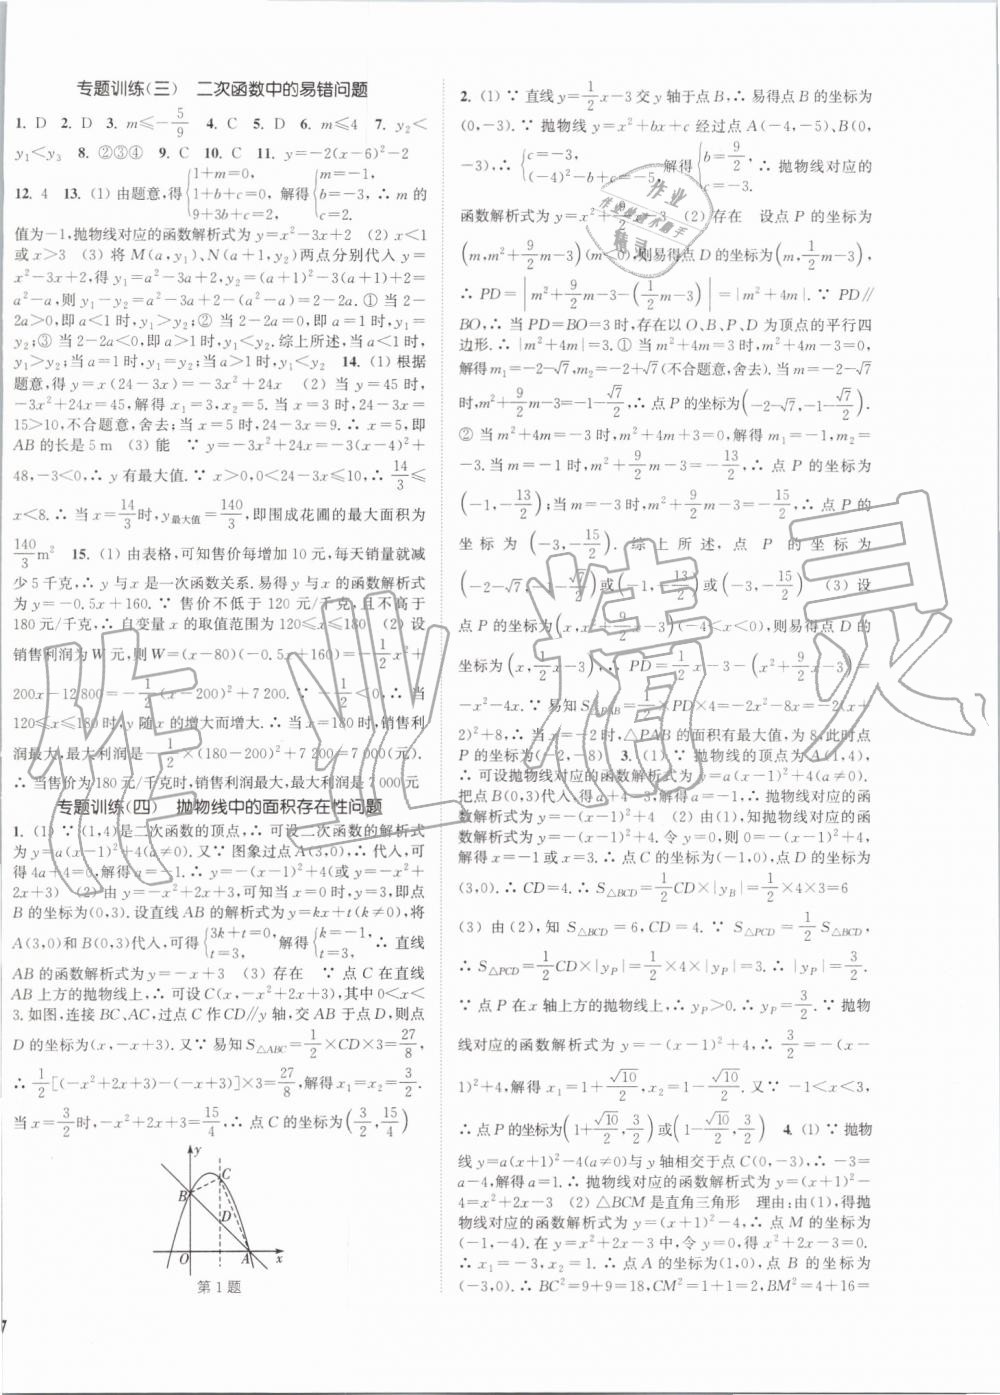 专题训练(三) 二次函数中的易错问题
1. D 2. D 3. m≤-5/9 4. C 5. D 6. m≤4 7. y₂<
y₁<y₃ 8. ②③④ 9. C 10. C 11. y=-2(x-6)²-2
12. 4 13. (1) 由题意,得{1+m=0, 1+b+c=0, 9+3b+c=2. 解得{m=-1, b=-3, c=2. ∴ m的
值为-1,抛物线对应的函数解析式为y=x²-3x+2 (2) x<1
或x>3 (3) 将M(a,y₁)、N(a+1,y₂)两点分别代入y=
x²-3x+2,得y₁=a²-3a+2,y₂=(a+1)²-3(a+1)+2=
a²-a,则y₁-y₂=a²-3a+2-(a²-a)=2-2a.① 当2-
2a>0,即a<1时,y₁>y₂;② 当2-2a=0,即a=1时,y₁=
y₂;③ 当2-2a<0,即a>1时,y₁<y₂.综上所述,当a<1时,
y₁>y₂;当a=1时,y₁=y₂;当a>1时,y₁<y₂ 14. (1) 根据
题意,得y=x(24-3x)=-3x²+24x (2) 当y=45时,
-3x²+24x=45,解得x₁=3,x₂=5.当x=3时,24-3x=
15>10,不合题意,舍去;当x=5时,24-3x=9.∴ x=5,即
AB的长是5 m (3) 能 ∵ y=-3x²+24x=-3(x-4)²+
48,-3<0,∴ y有最大值.∵ x>0,0<24-3x≤10,∴ 14/3≤
x<8.∴ 当x=14/3时,y最大值=140/3,即围成花圃的最大面积为
140/3 m² 15. (1) 由表格,可知售价每增加10元,每天销量就减
少5千克,∴ y与x是一次函数关系.易得y与x的函数解析式
为y=-0.5x+160.∵ 售价不低于120元/千克,且不高于
180元/千克,∴ 自变量x的取值范围为120≤x≤180 (2) 设
销售利润为W元,则W=(x-80)(-0.5x+160)=-1/2x²+
200x-12 800=-1/2(x-200)²+7 200.∵ -1/2<0,∴ 当
120≤x≤180时,y随x的增大而增大.∴ 当x=180时,销售利
润最大,最大利润是-1/2×(180-200)²+7 200=7 000(元).
∴ 当售价为180元/千克时,销售利润最大,最大利润是7 000元
专题训练(四) 抛物线中的面积存在性问题
1. (1) ∵ (1,4)是二次函数的顶点,∴ 可设二次函数的解析式
为y=a(x-1)²+4(a≠0).又∵ 图象过点A(3,0),∴ 代入,可
得4a+4=0,解得a=-1.∴ y=-(x-1)²+4(或y=-x²+
2x+3) (2) 由y=-x²+2x+3,可知当x=0时,y=3,即点
B的坐标为(0,3).设直线AB的解析式为y=kx+t(k≠0),将
A(3,0)和B(0,3)代入,可得{3k+t=0, t=3, 解得{k=-1, t=3. ∴ 直线
AB的函数解析式为y=-x+3 (3) 存在 ∵ 点C在直线
AB上方的抛物线上,∴ 可设C(x,-x²+2x+3),其中0<x<
3.如图,连接BC、AC,过点C作CD∥y轴,交AB于点D,则点
D的坐标为(x,-x+3).又∵ 易知S△ABC=1/2×CD×3=27/8,
∴ 1/2[(-x²+2x+3)-(-x+3)]×3=27/8,解得x₁=x₂=3/2.
当x=3/2时,-x²+2x+3=15/4,∴ 点C的坐标为(3/2,15/4)
y
B
C
D
O
A
x
第1题
2. (1) ∵ 直线y=1/2x-3交y轴于点B,∴ 易得点B的坐标为
(0,-3).∵ 抛物线y=x²+bx+c经过点A(-4,-5)、B(0,
-3),∴ {c=-3, (-4)²-4b+c=-5, 解得{b=9/2, c=-3. ∴ 抛物线对应的
函数解析式为y=x²+9/2x-3 (2) 存在 设点P的坐标为
(m,m²+9/2m-3)(m<0),则易得点D的坐标为(m,1/2m-3),
∴ PD=|m²+9/2m-3-(1/2m-3)|=|m²+4m|.∵ PD∥
BO,∴ 当PD=BO=3时,存在以O、B、P、D为顶点的平行四
边形.∴ |m²+4m|=3.① 当m²+4m=3时,m²+4m-3=0,
解得m₁=-2-√7,m₂=-2+√7(不合题意,舍去).当m=-2-√7
时,m²+9/2m-3=-1-√7/2,∴ 点P的坐标为(-2-√7,-1-√7/2).
② 当m²+4m=-3时,m²+4m+3=0,解得m₁=-1,m₂=
-3.当m=-1时,m²+9/2m-3=-13/2,∴ 点P的坐标为
(-1,-13/2);当m=-3时,m²+9/2m-3=-15/2,∴ 点P的
坐标为(-3,-15/2).综上所述,点P的坐标为
(-2-√7,-1-√7/2)或(-1,-13/2)或(-3,-15/2) (3) 设
点P的坐标为(x,x²+9/2x-3)(-4<x<0),则易得点D的
坐标为(x,1/2x-3),∴ PD=1/2x-3-(x²+9/2x-3)=
-x²-4x.∵ 易知S△PAB=1/2×PD×4=-2x²-8x=-2(x+
2)²+8,∴ 当x=-2时,△PAB的面积有最大值,为8,此时点
P的坐标为(-2,-8) 3. (1) ∵ 抛物线的顶点为A(1,4),
∴ 可设抛物线对应的函数解析式为y=a(x-1)²+4(a≠0).
把点B(0,3)代入,得a+4=3,解得a=-1.∴ 抛物线对应的函
数解析式为y=-(x-1)²+4 (2) 由(1),知抛物线对应的函
数解析式为y=-(x-1)²+4.令y=0,则0=-(x-1)²+4,
解得x=-1或x=3.∴ 点C的坐标为(-1,0),点D的坐标为
(3,0).∴ CD=4.∴ S△BCD=1/2CD×|yB|=1/2×4×3=6
(3) 由(2),知S△BCD=6,CD=4.∵ S△PCD=1/2S△BCD,
∴ S△PCD=1/2CD×|yP|=1/2×4×|yP|=3.∴ |yP|=3/2.
∵ 点P在x轴上方的抛物线上,∴ yP>0.∴ yP=3/2.∵ 抛物
线对应的函数解析式为y=-(x-1)²+4,∴ 3/2=-(x-
1)²+4,解得x₁=1+√10/2,x₂=1-√10/2.又∵ -1<x<3,
∴ 点P的坐标为(1+√10/2,3/2)或(1-√10/2,3/2) 4. (1) ∵ 抛物
线y=a(x+1)²-4(a≠0)与y轴相交于点C(0,-3),∴ -3=
a-4,解得a=1.∴ 抛物线对应的函数解析式为y=(x+1)²
-4=x²+2x-3 (2) △BCM是直角三角形 理由:由(1),得抛
物线对应的函数解析式为y=(x+1)²-4,∴ 点M的坐标为
(-1,-4).在y=x²+2x-3中,令y=0,得x²+2x-3=0.
∴ x₁=-3,x₂=1.∴ 点A的坐标为(1,0),点B的坐标为
(-3,0).∴ BC²=9+9=18,CM²=1+1=2,BM²=4+16=
作业精灵